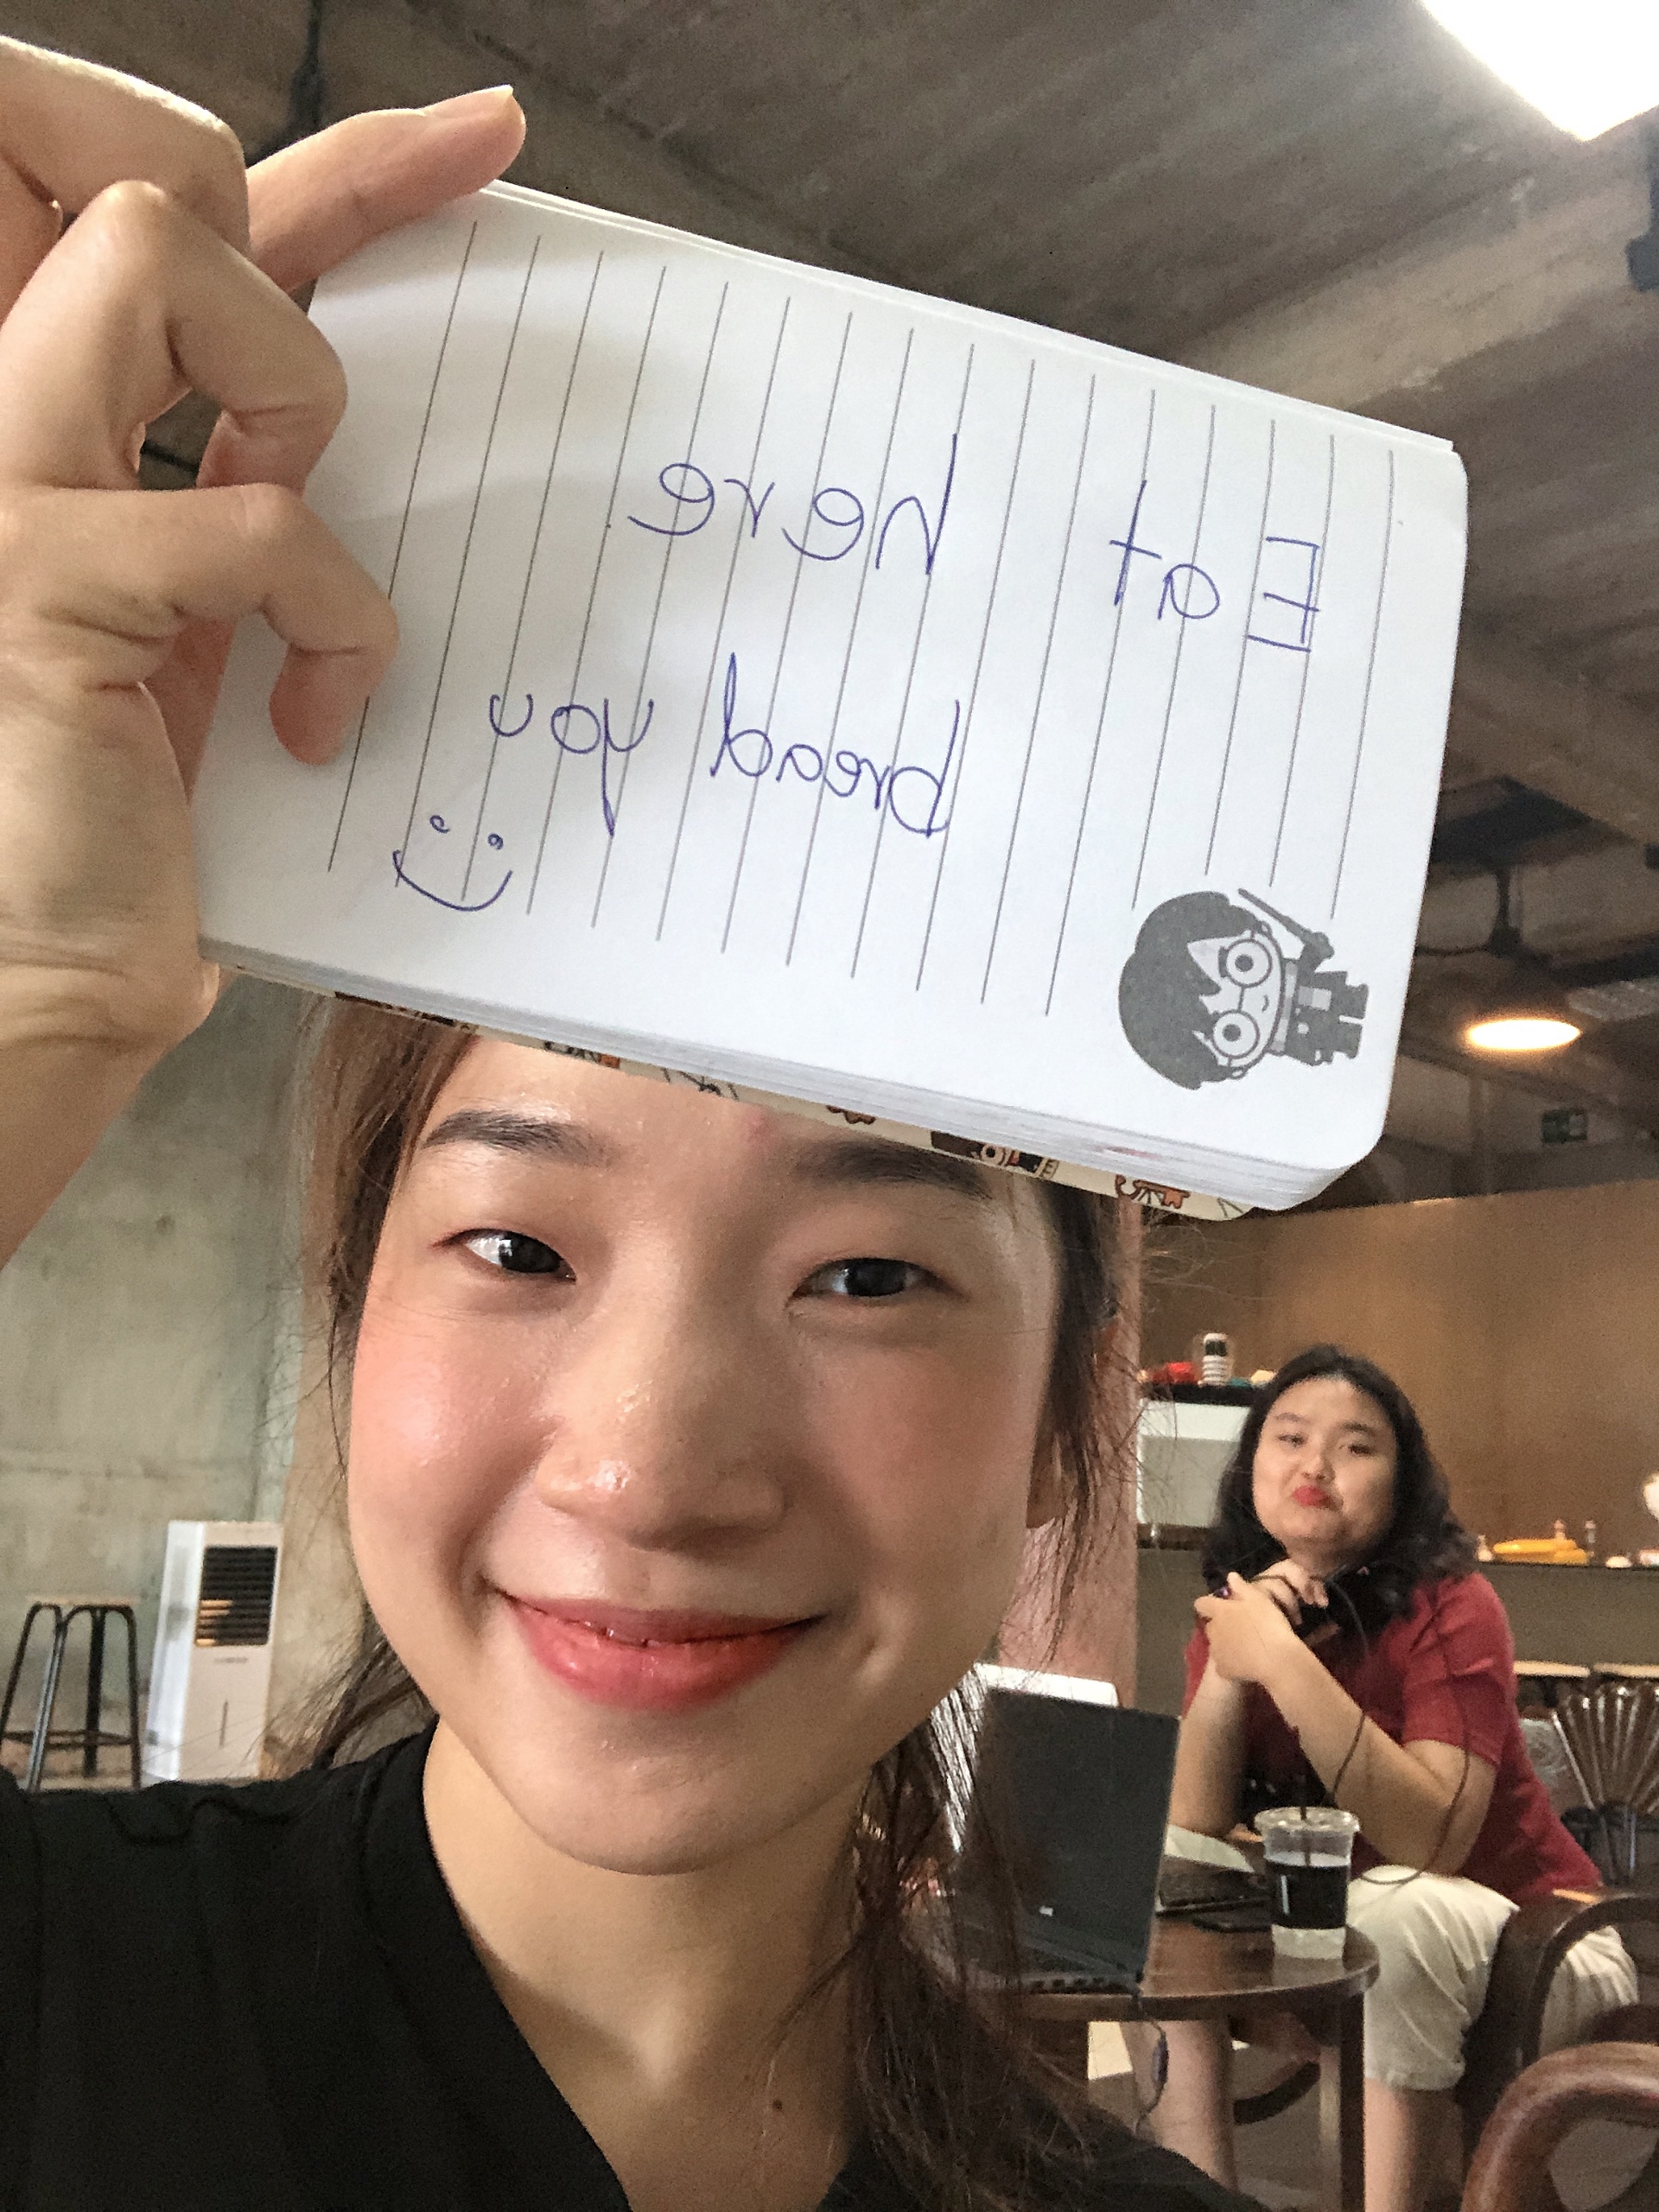 Eat here
bread you